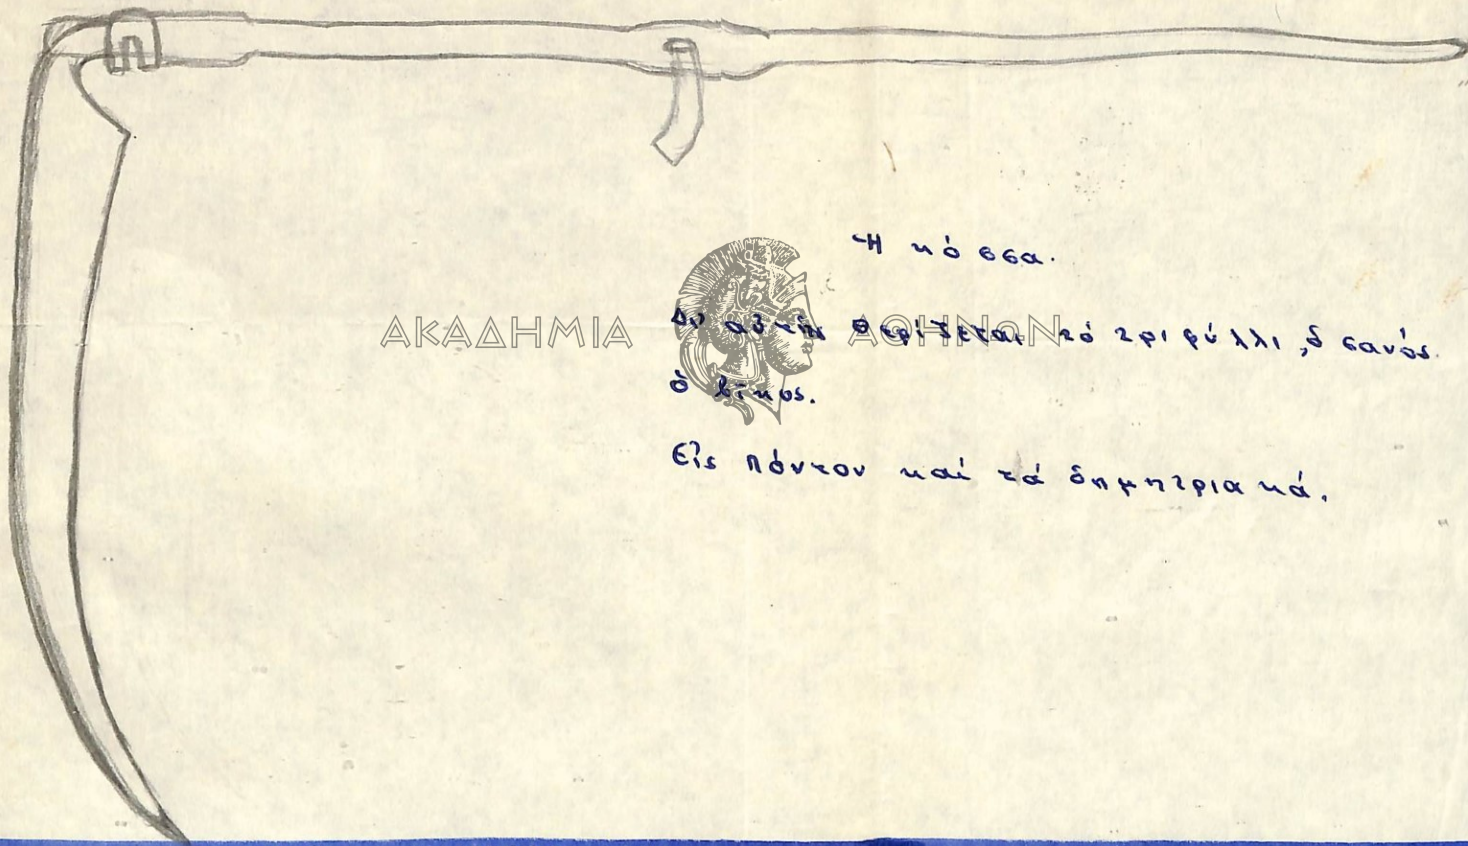 Ἡ κόσσα.
ΑΚΑΔΗΜΙΑ ΑΘΗΝΩΝ
Δι' αὐτῆς θερίζεται τό τριφύλλι, ὁ σανός
ὁ βίκος.
Εἰς Πόντον καί τά δημητριακά.